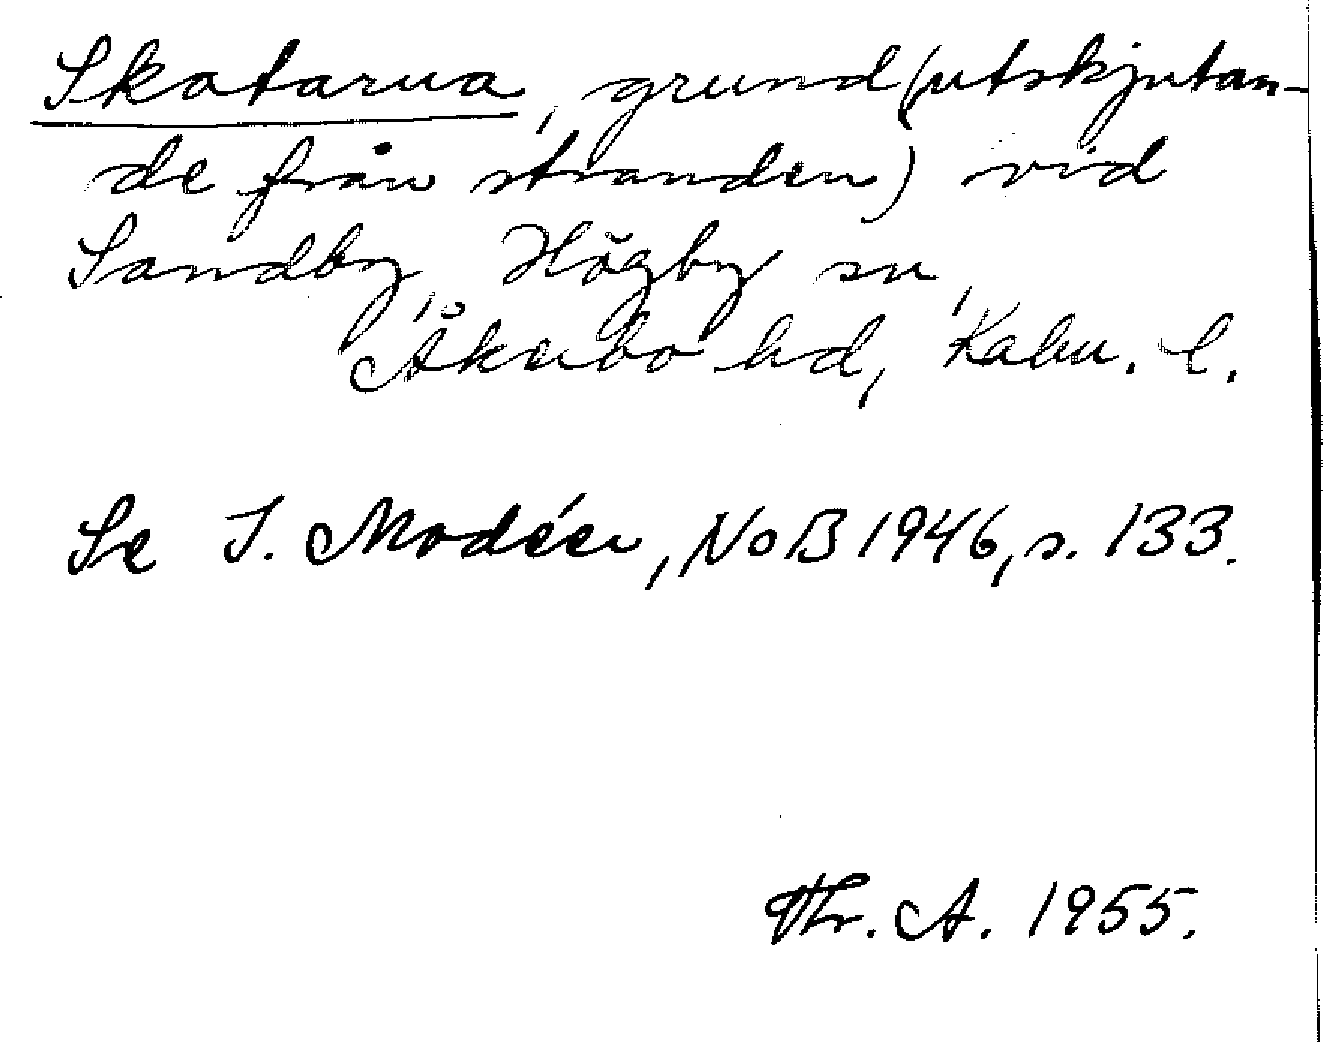 Skatarua, grund (utskjutan-
de från stranden) vid
Sandby, Högby sn,
Åkerbo hd, Kalm. l.
Se I. Modéer, NoB 1946, s. 133.
Thr. A. 1955.